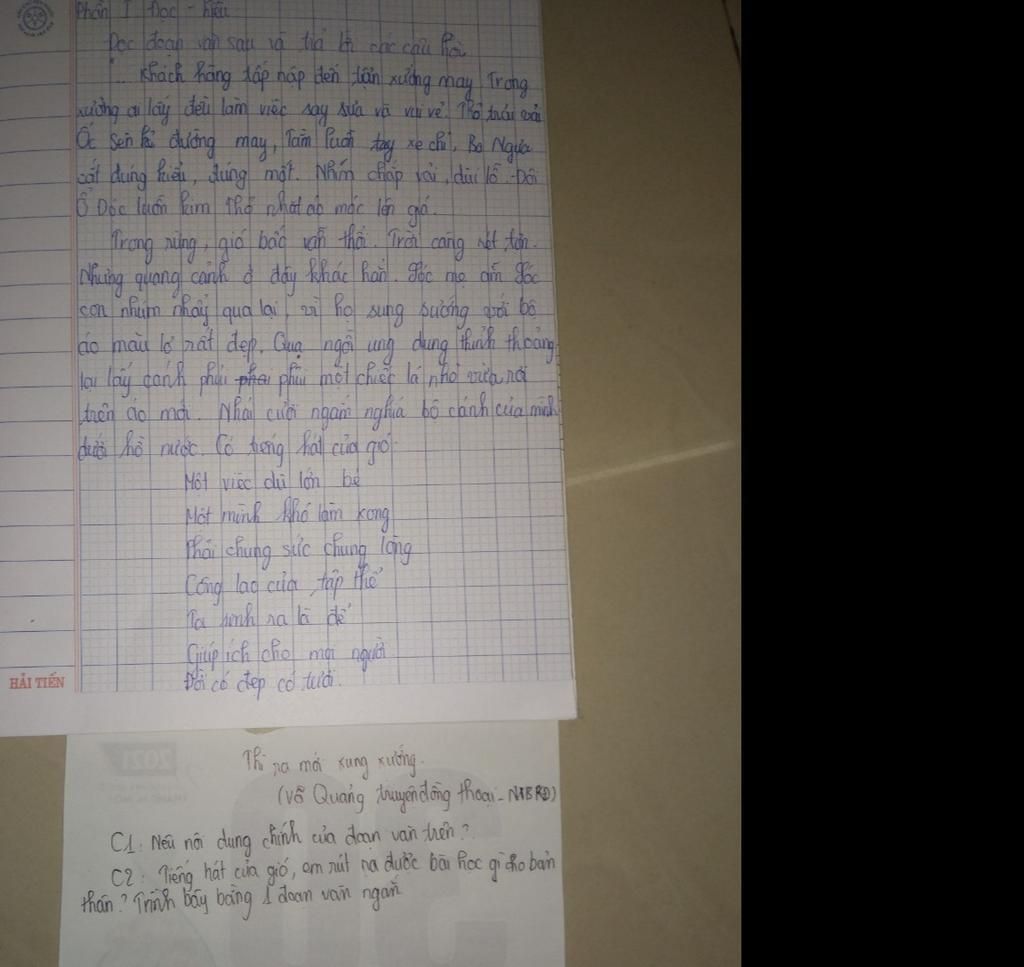 Phần I Đọc - hiểu
Đọc đoạn văn sau và trả lời các câu hỏi
"... Khách hàng tấp nập đến tận xưởng may Trong
xưởng ai lấy đều làm việc say sưa và vui vẻ. Thỏ trải vải
Ốc Sên kẻ đường may, Tằm luôn tay xe chỉ, Bọ Ngựa
cắt đúng kiểu, đúng mốt. Nhím chắp vải, dùi lỗ. Đôi
Ổ Dộc luồn kim Thỏ nhặt áo móc lên giá.
Trong rừng, gió bấc vẫn thổi. Trời càng rét tợn.
Nhưng quang cảnh ở đây khác hẳn. Sóc mẹ ẵm Sóc
con nhún nhảy qua lại, vì họ sung sướng với bộ
áo màu lá rất đẹp. Quạ ngồi ung dung thỉnh thoảng
lại lấy cánh phủi phủi một chiếc lá nhỏ vừa rơi
trên áo mới. Nhái cười ngắm nghía bộ cánh của mình
dưới hồ nước. Có tiếng hát của gió
Một việc dù lớn bé
Một mình khó làm xong
Phải chung sức chung lòng
Công lao của tập thể
Ta hình ra là để
Giúp ích cho mọi người
Đời có đẹp có tươi.
HẢI TIẾN
Thì ra mới xung xướng.
(Võ Quảng truyện đồng thoại - NXBKĐ)
C1: Nêu nội dung chính của đoạn văn trên?
C2: Tiếng hát của gió, em rút ra được bài học gì cho bản
thân? Trình bày bằng 1 đoạn văn ngắn